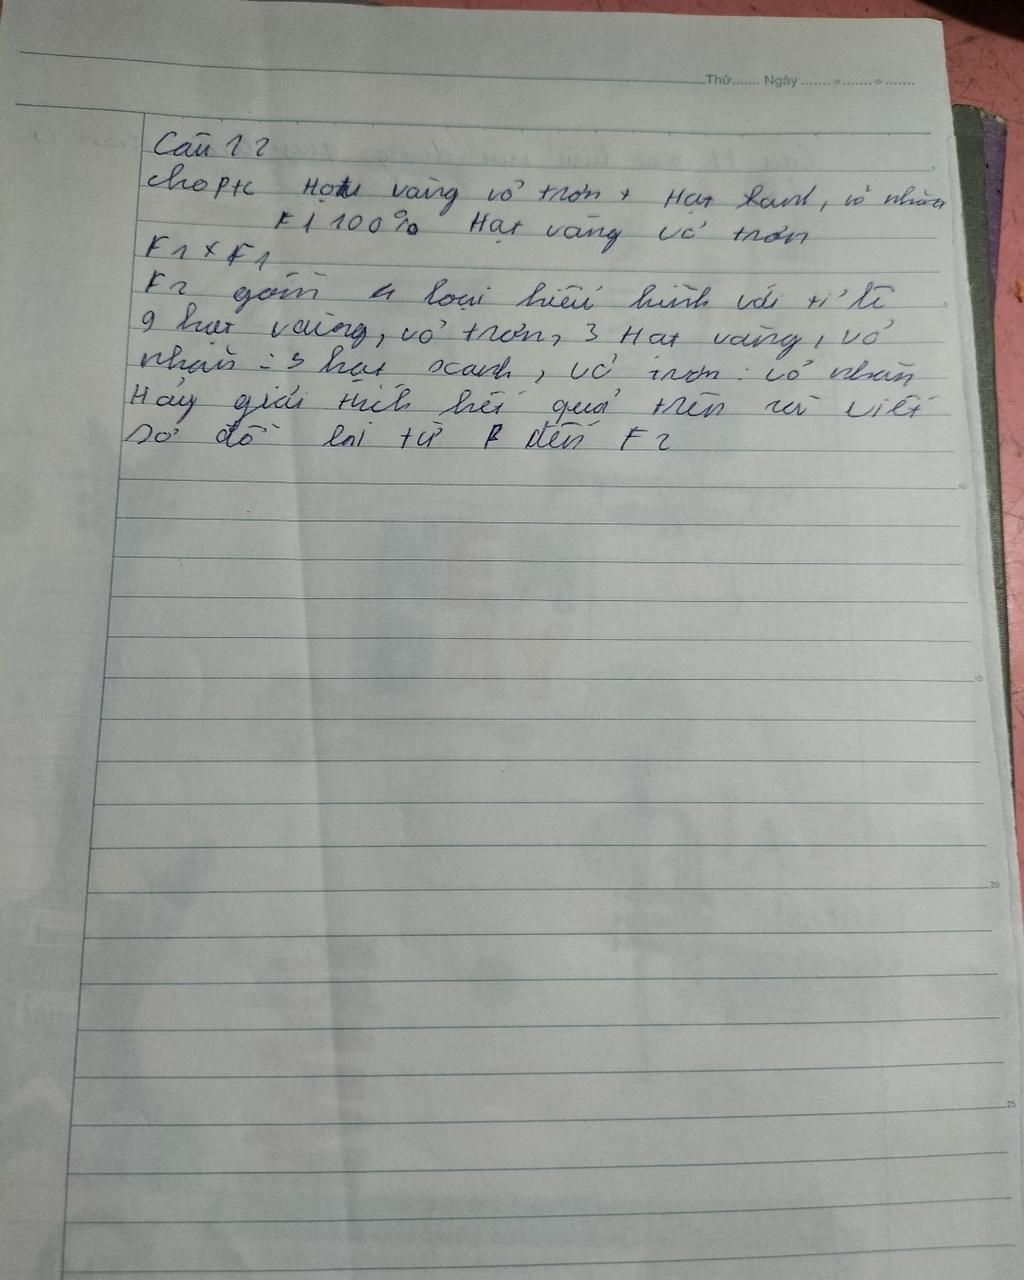 Thứ....... Ngày ....................
Câu 12
cho Ptc Hạt vàng vỏ trơn x Hạt xanh, vỏ nhăn
F1 100% Hạt vàng vỏ trơn
F1 x F1
F2 gồm 4 loại kiểu hình với tỉ lệ
9 hạt vàng, vỏ trơn, 3 Hạt vàng, vỏ
nhăn : 3 hạt xanh, vỏ trơn : vỏ nhăn
Hãy giải thích kết quả trên và viết
sơ đồ lai từ P đến F2
20
25